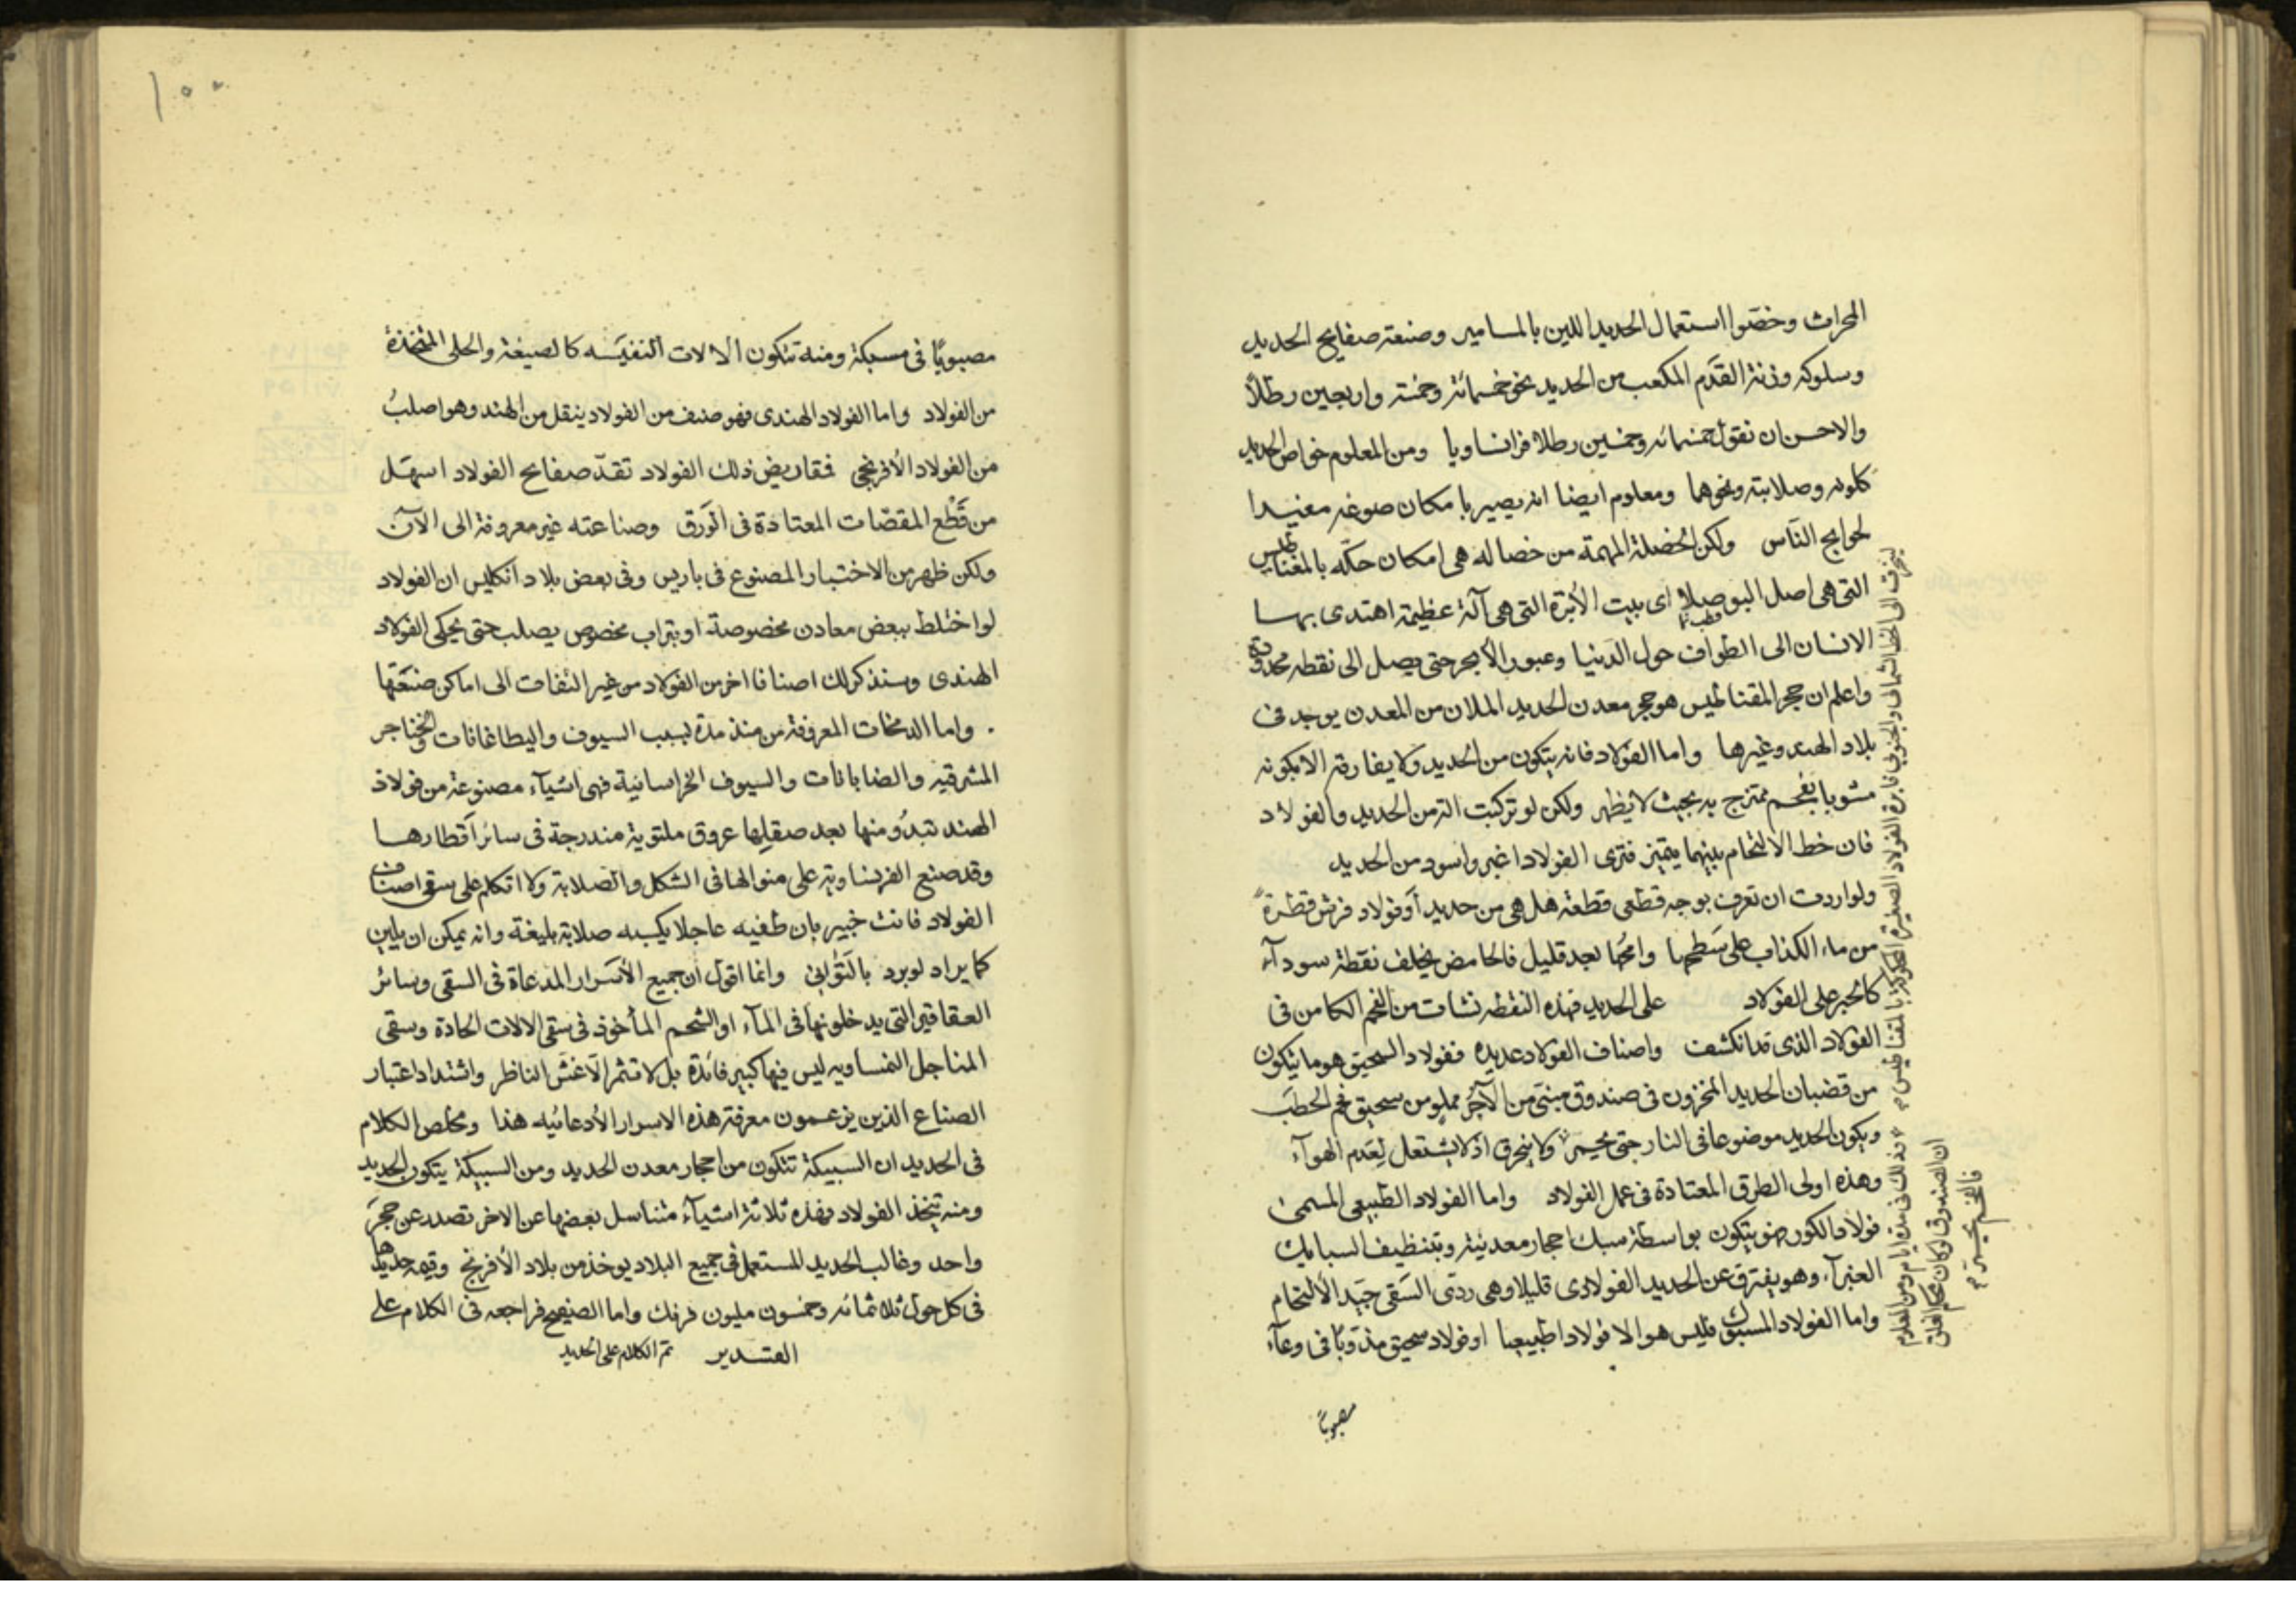 المحراث وخصّوا استعمال الحديد اللين بالمسامير وصنعة صفايح الحديد
وسلوكه وزنة القدَم المكعب من الحديد نحو خمسمائة وخمسة واربعين رطلاً
والاحسن ان نقول خمسمائه وخمسين رطلا فرانساويا ومن المعلوم خواص الحديد
كلونه وصلابته ونحوهما ومعلوم ايضا انه يصير بامكان صوغه مفيدا
لحوايج النّاس ولكن الخصلة المهمة من خصاله هى امكان حكّه بالمغناطيس
التى هى اصل البوصلا اى بيت الأبرة التى هى آلة عظيمة اهتدى بها
الانسان الى الطواف حول الدنيا وعبور الأبحر حتى يصل الى نقطه محدودة
واعلم ان حجر المقناطيس هو حجر معدن الحديد الملان من المعدن يوجد فى
بلاد الهند وغيرها واما الفولاد فانه يتكون من الحديد ولا يفارقه الا بكونه
مشوبا بفحم ممتزج به بحيث لا يظهر ولكن لو تركبت الة من الحديد والفولاد
فان خط الالتحام بينهما يتميز فترى الفولاد اغبر واسود من الحديد
ولو اردت ان تعرف بوجه قطعى قطعة هل هى من حديد أو فولاد فرش قطرةً
من ماء الكذاب على سَطحها وامحُها بعد قليل فالحامض يخلف نقطة سودآء
كالحبر على الفولاد على الحديد فهذه النقطه نشات من الفحم الكامن فى
الفولاد الذى قد انكشف واصناف الفولاد عديده ففولاد السحيق هو ما يتكون
من قضبان الحديد المخزون فى صندوق مبنى من الآجُرّ مملو من سحيق فحم الحطَب
ويكون الحديد موضوعا فى النار حتى يحمرّ ولا ينحرق اذ لا يشتعل لِعَدم الهوآء
وهذه اولى الطرق المعتادة فى عمل الفولاد واما الفولاد الطبيعى المسمى
فولاد الكور فهو يتكون بواسطة سبك احجار معدنية وبتنظيف السبايك
الغبرآء وهو يفترق عن الحديد الفولادى قليلا وهى ردىّ السَقى جَيّد الألتحام
واما الفولاد المسبوك فليس هو الا فولادا طبيعيا او فولاد سحيق مذوّبًا فى وعآء
مصبوبًا
لينحرف الى الخط الشمالى والجنوبى فابرة الفولاد الصغيرة المحكوكة بالمقناطيس
وذلك فى مدة ايام ومن المعلوم
ان الصندوق لو كان محكم الغلق
فالفحم يحمرّ
١٠٠
مصبوبًا فى مسبكة ومنه تتكون الالات النفيَسه كالصيغة والحلى المتخذة
من الفولاد واما الفولاد الهندى فهو صنف من الفولاد ينقل من الهند وهو اصلبُ
من الفولاد الأفرنجى فمقاريض ذلك الفولاد تقدّ صفايح الفولاد اسهَل
من قَطْع المقصّات المعتادة فى الَورَق وصناعته غير معروفة الى الآن
ولكن ظهر من الاختبار المصنوع فى باريس وفى بعض بلاد انكليس ان الفولاد
لو اختلط ببعض معادن مخصوصة او بتراب مخصوص يصلب حتى يحكى الفولاد
الهندى وسنذكر لك اصنافا اخر من الفولاد من غير التفات الى اماكن صنعَتها
واما الدمخات المعروفة من منذ مدة بسبب السيوف واليطاغانات والخناجر
المشرقيه والضابانات والسيوف الخراسانية فهى اشيآء مصنوعة من فولاذ
الهند تبدُو منها بعد صقلِها عروق ملتوية مندرجة فى سائر أقطارها
وقد صنع الفرنساويه على منوالها فى الشكل والصلابة ولا اتكلم على سقى اصناف
الفولاد فانت خبير بان طفيه عاجلا يكسبه صلابة بليغة وانه يمكن ان يلين
كما يراد لو برد بالتَوانِى وانما اقول ان جميع الأسَرار المدعاة فى السقى وسائر
العقاقير التى يدخلونها فى المآء او الشحم المأخوذ فى سقى الالات الحادة وسقى
المناجل النمساويه ليس فيها كبير فائدة بل لا تثمر الّا غشَ الناظر واشتداد اعتبار
الصناع الذين يزعمون معرفة هذه الاسرار الأدعائيه هذا ومخلص الكلام
فى الحديد ان السبيكة تتكون من احجار معدن الحديد ومن السبيكة يتكون الحديد
ومنه يتخذ الفولاد فهذه ثلاثة اشيآء متناسل بعضها عن الاخر تصدر عن حجَر
واحد وغالب الحديد المستعمل فى جميع البلاد يوخذ من بلاد الأفرنج وقيمه حديدها
فى كل حول ثلاثمائه وخمسون مليون فرنك واما الصفيح فراجعه فى الكلام على
القتدير تم الكلام على الحديد